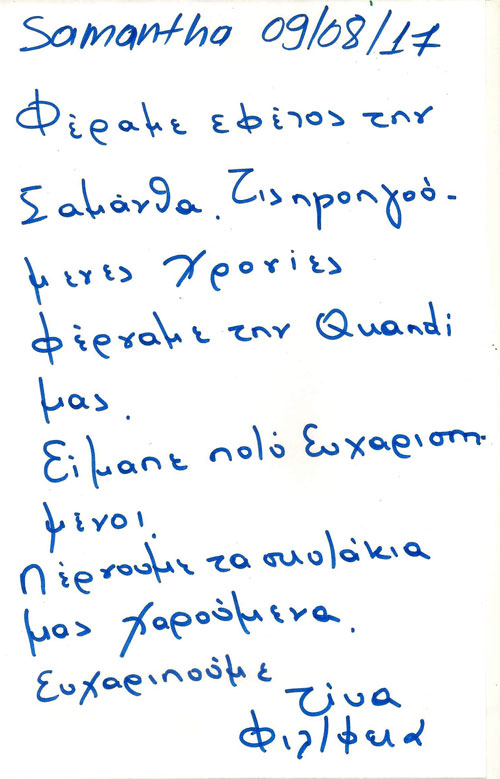 Samantha 09/08/17
Φέραμε εφέτος την
Σαμάνθα. Τις προηγού-
μενες χρονιές
φέρναμε την Quandi
μας.
Είμαστε πολύ ευχαριστη-
μένοι.
Πέρνουμε τα σκυλάκια
μας χαρούμενα.
Ευχαριστούμε
Τίνα
Φιλ/φεια